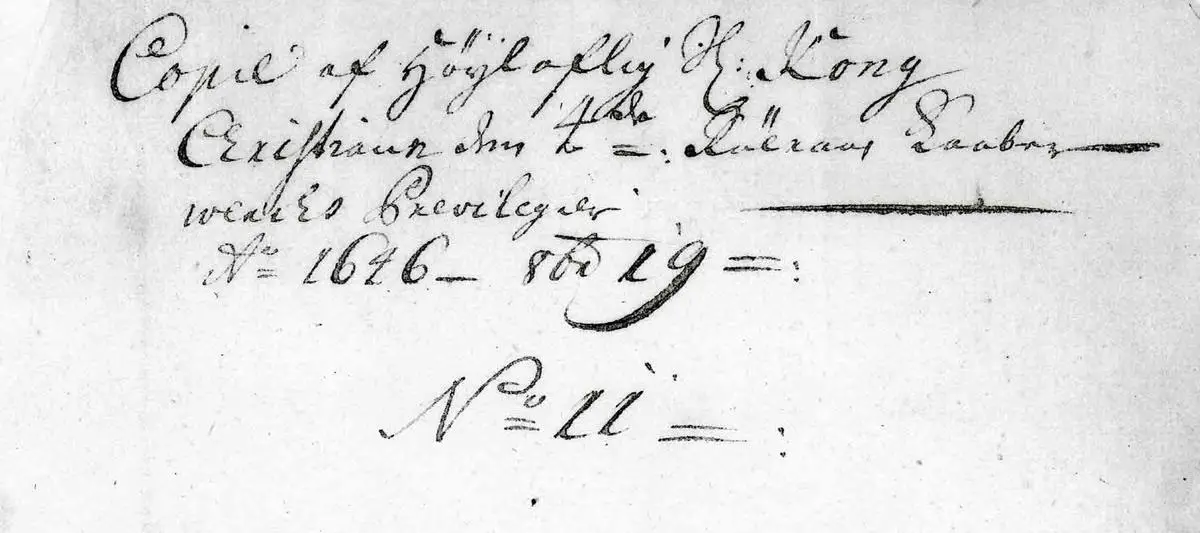 Copie af Höyloflig H: Kong
Christian den 4de =: Röeraas Kaaber
wercks Previlegier
Ao 1646 – 8bd 19 =:
No 11 =: